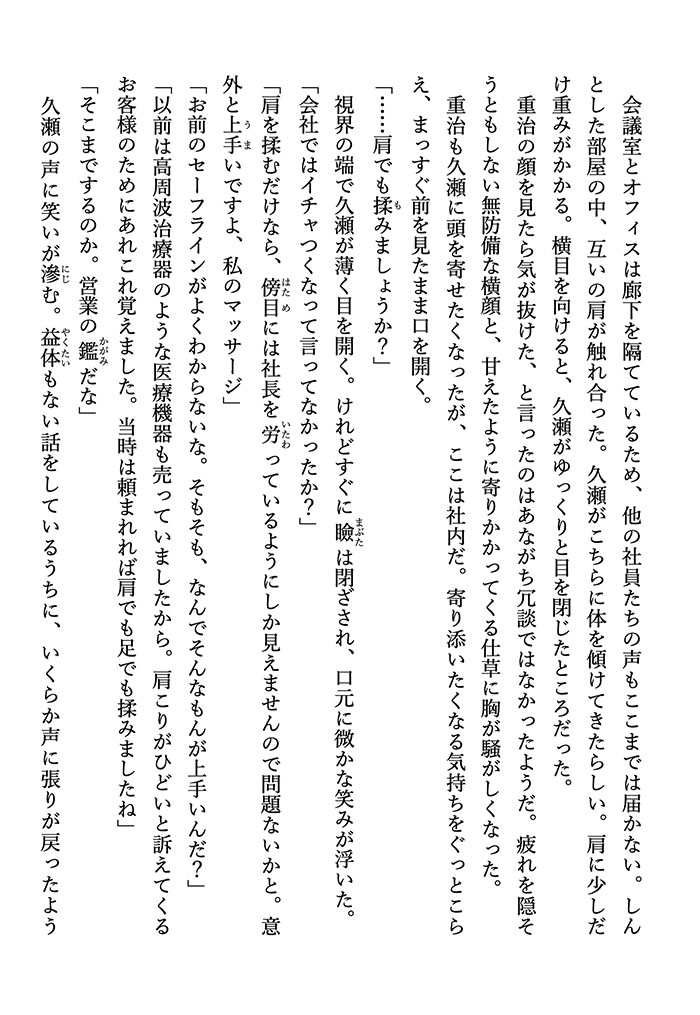 会議室とオフィスは廊下を隔てているため、他の社員たちの声もここまでは届かない。しん
とした部屋の中、互いの肩が触れ合った。久瀬がこちらに体を傾けてきたらしい。肩に少しだ
け重みがかかる。横目を向けると、久瀬がゆっくりと目を閉じたところだった。
　重治の顔を見たら気が抜けた、と言ったのはあながち冗談ではなかったようだ。疲れを隠そ
うともしない無防備な横顔と、甘えたように寄りかかってくる仕草に胸が騒がしくなった。
　重治も久瀬に頭を寄せたくなったが、ここは社内だ。寄り添いたくなる気持ちをぐっとこら
え、まっすぐ前を見たまま口を開く。
「……肩でも揉みましょうか？」
　視界の端で久瀬が薄く目を開く。けれどすぐに瞼は閉ざされ、口元に微かな笑みが浮いた。
「会社ではイチャつくなって言ってなかったか？」
「肩を揉むだけなら、傍目には社長を労っているようにしか見えませんので問題ないかと。意
外と上手いですよ、私のマッサージ」
「お前のセーフラインがよくわからないな。そもそも、なんでそんなもんが上手いんだ？」
「以前は高周波治療器のような医療機器も売っていましたから。肩こりがひどいと訴えてくる
お客様のためにあれこれ覚えました。当時は頼まれれば肩でも足でも揉みましたね」
「そこまでするのか。営業の鑑だな」
　久瀬の声に笑いが滲む。益体もない話をしているうちに、いくらか声に張りが戻ったよう